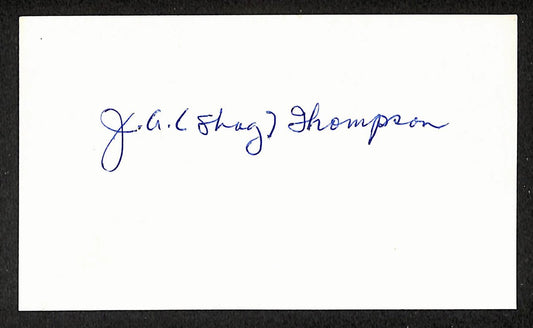 J.A. (Shag) Thompson